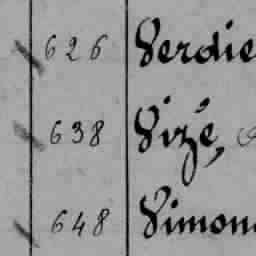 626 Verdie
638 Vizé,
648 Simon